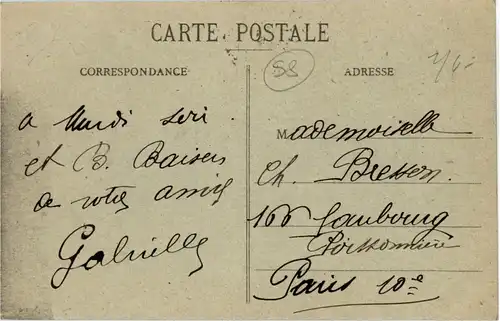 CARTE POSTALE
CORRESPONDANCE
ADRESSE
58
à Mardi soir.
et B. Baisers
de votre amie
Gabrielle
Mademoiselle
Ch. Bresson.
166 Faubourg
Poissonnière
Paris 10e